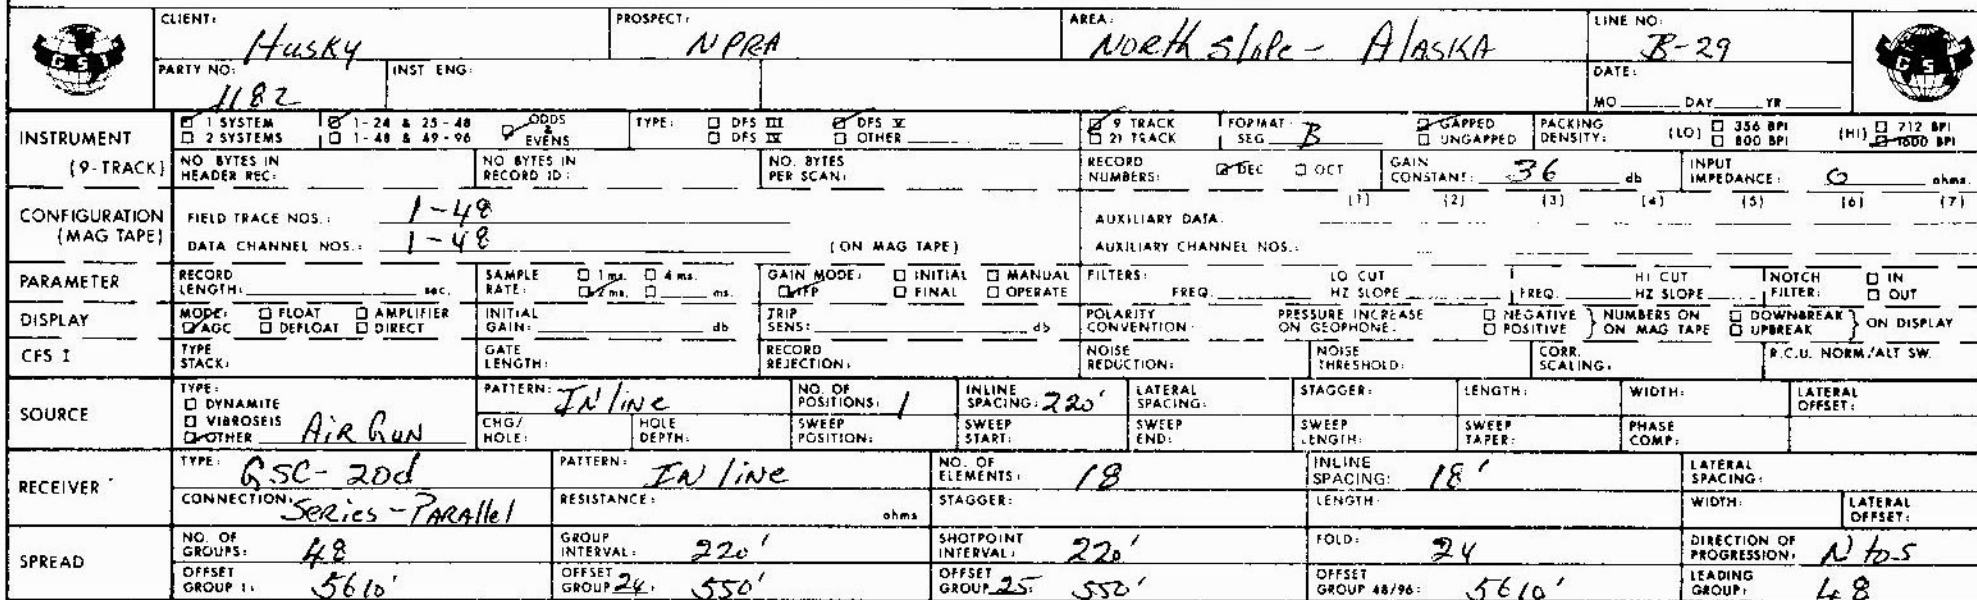 CLIENT: Husky PROSPECT: NPRA AREA: North Slope - Alaska LINE NO: B-29
GSI GSI
PARTY NO: 1182 INST ENG: DATE:
MO DAY YR
INSTRUMENT (9-TRACK) 1 SYSTEM 1-24 & 25-48 ODDS & EVENS TYPE: DFS III DFS V 9 TRACK FORMAT SEG B GAPPED PACKING DENSITY: (LO) 356 BPI (HI) 712 BPI
2 SYSTEMS 1-48 & 49-96 DFS IV OTHER 21 TRACK UNGAPPED 800 BPI 1600 BPI
NO BYTES IN HEADER REC: NO BYTES IN RECORD ID: NO. BYTES PER SCAN: RECORD NUMBERS: DEC OCT GAIN CONSTANT: 36 db INPUT IMPEDANCE: O ohms.
CONFIGURATION (MAG TAPE) FIELD TRACE NOS.: 1-48 AUXILIARY DATA: (1) (2) (3) (4) (5) (6) (7)
DATA CHANNEL NOS.: 1-48 (ON MAG TAPE) AUXILIARY CHANNEL NOS.:
PARAMETER RECORD LENGTH: sec. SAMPLE RATE: 1 ms. 4 ms. 2 ms. ms. GAIN MODE: INITIAL MANUAL IFP FINAL OPERATE FILTERS: FREQ LO CUT HZ SLOPE FREQ HI CUT HZ SLOPE NOTCH FILTER: IN OUT
DISPLAY MODE: FLOAT AMPLIFIER AGC DEFLOAT DIRECT INITIAL GAIN: db TRIP SENS: db POLARITY CONVENTION: PRESSURE INCREASE ON GEOPHONE: NEGATIVE POSITIVE NUMBERS ON ON MAG TAPE DOWNBREAK UPBREAK ON DISPLAY
CFS I TYPE STACK: GATE LENGTH: RECORD REJECTION: NOISE REDUCTION: NOISE THRESHOLD: CORR. SCALING: R.C.U. NORM./ALT SW.
SOURCE TYPE: DYNAMITE VIBROSEIS OTHER Air Gun PATTERN: IN line NO. OF POSITIONS: 1 INLINE SPACING: 220' LATERAL SPACING: STAGGER: LENGTH: WIDTH: LATERAL OFFSET:
CHG/HOLE: HOLE DEPTH: SWEEP POSITION: SWEEP START: SWEEP END: SWEEP LENGTH: SWEEP TAPER: PHASE COMP:
RECEIVER TYPE: GSC-20d PATTERN: IN line NO. OF ELEMENTS: 18 INLINE SPACING: 18' LATERAL SPACING:
CONNECTION: Series-Parallel RESISTANCE: ohms STAGGER: LENGTH: WIDTH: LATERAL OFFSET:
SPREAD NO. OF GROUPS: 48 GROUP INTERVAL: 220' SHOTPOINT INTERVAL: 220' FOLD: 24 DIRECTION OF PROGRESSION: N to S
OFFSET GROUP 1: 5610' OFFSET GROUP 24: 550' OFFSET GROUP 25: 550' OFFSET GROUP 48/96: 5610' LEADING GROUP: 48